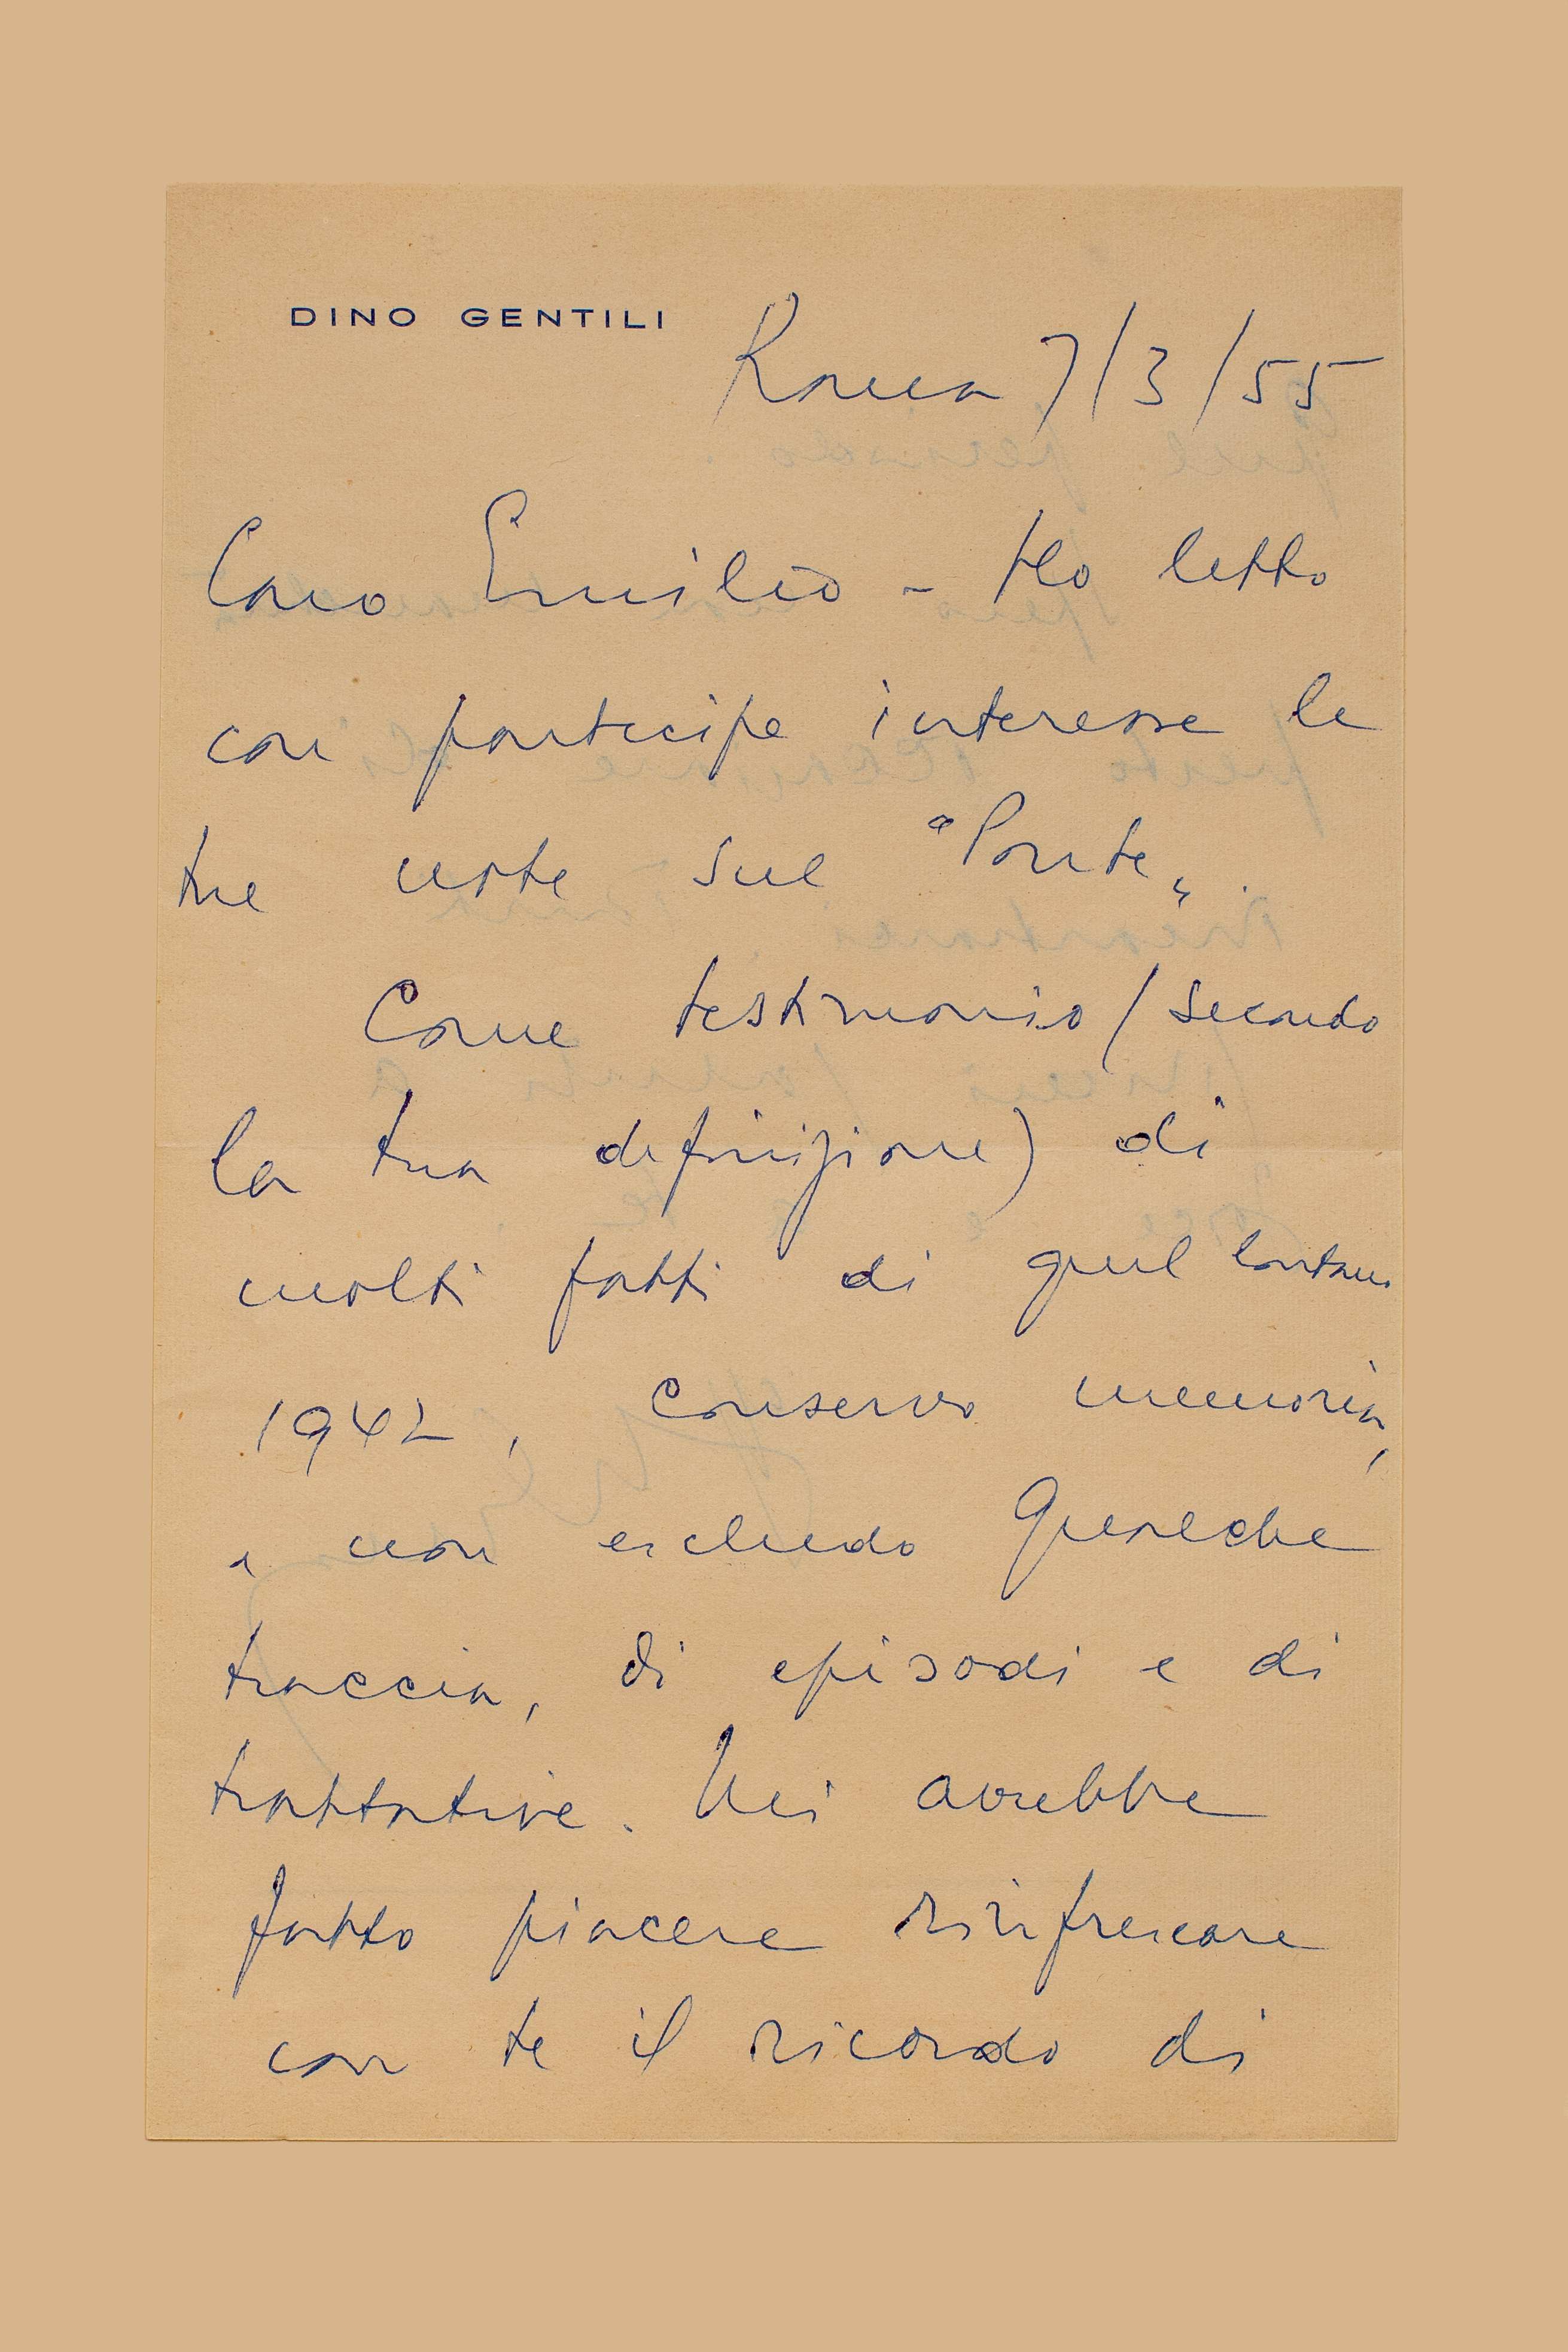 DINO GENTILI
Roma 7/3/55
Caro Emilio - Ho letto
con partecipe interesse le
tue note sul "Ponte".
Come testimonio (secondo
la tua definizione) di
molti fatti di quel lontano
1942, conservo memoria,
e non escludo qualche
traccia, di episodi e di
trattative. Mi avrebbe
fatto piacere rinfrescare
con te il ricordo di